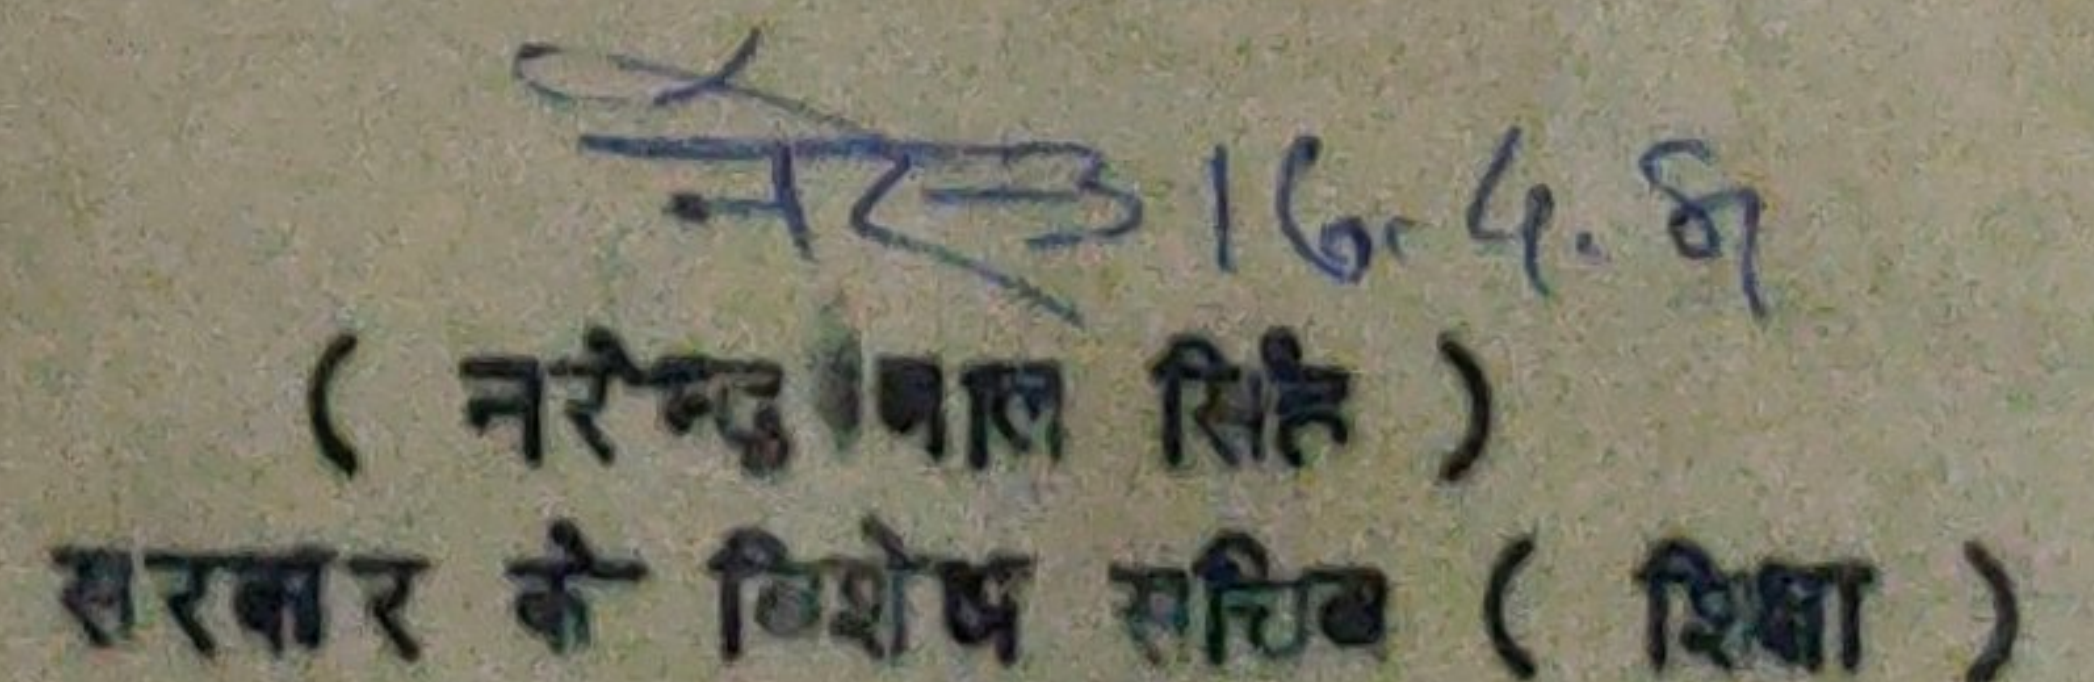 16.4.89
( नरेन्द्र पाल सिंह )
सरकार के विशेष सचिव ( शिक्षा )